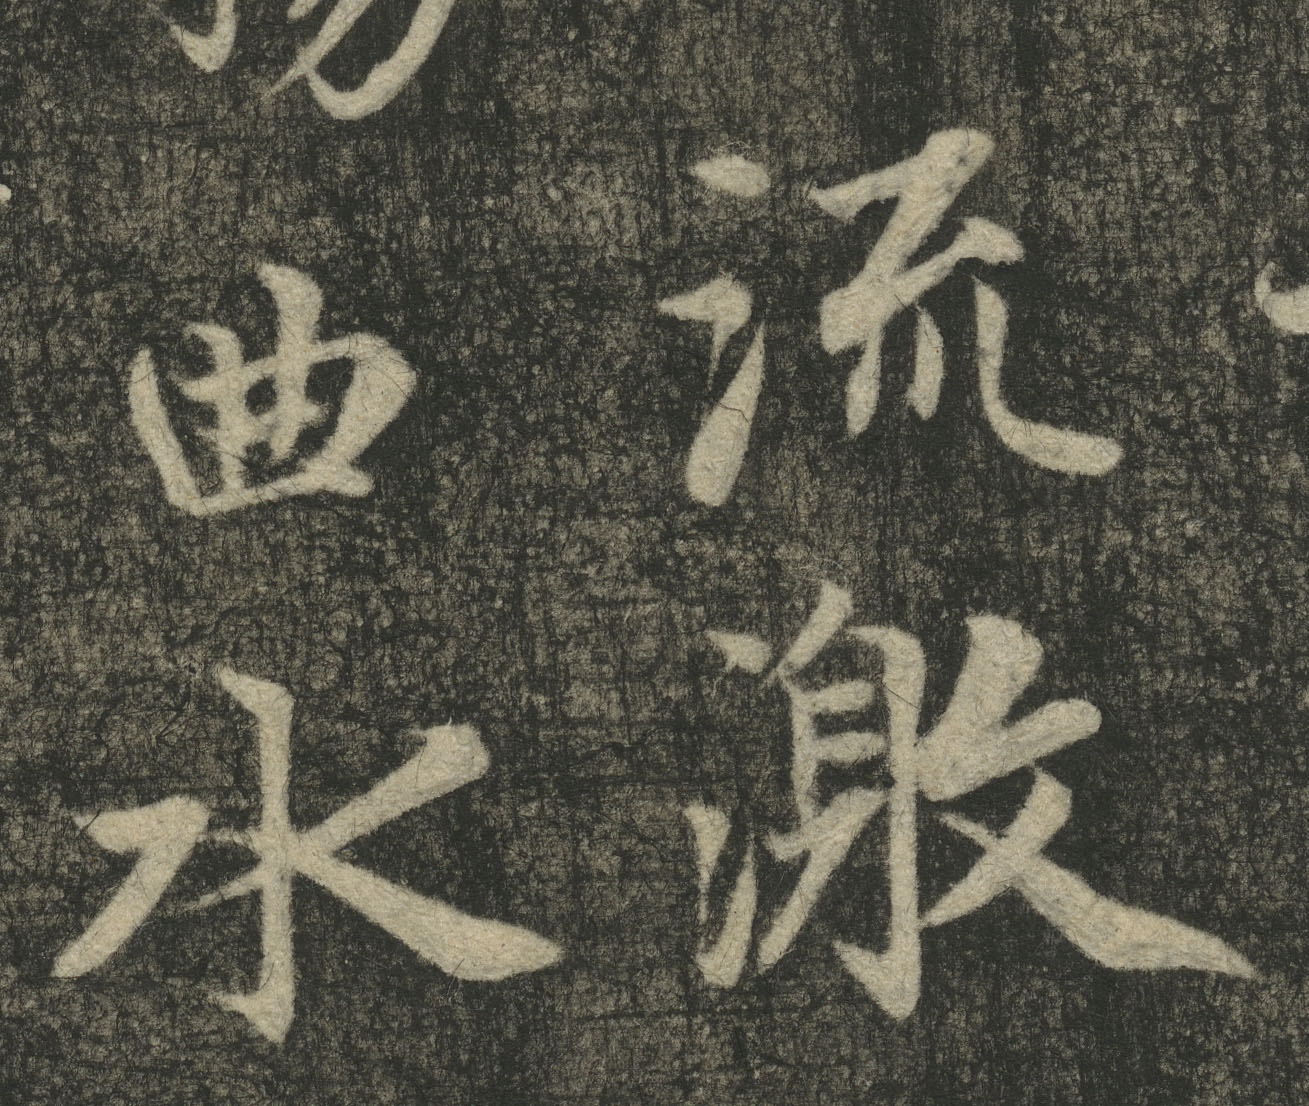 流激
曲水